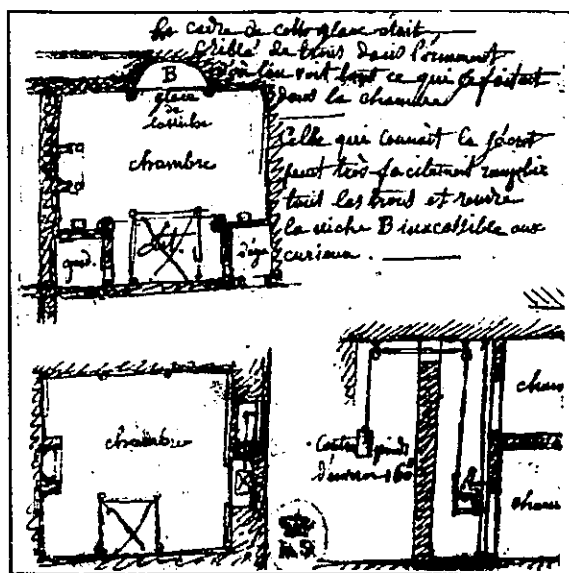 Le cadre de cette glace était
criblé de trous dans l'ornement
d'où l'on voit tout ce qui se faisait
dans la chambre
Celle qui connait ce secret
peut très facilement remplir
tout les trous et rendre
la niche B inaccessible aux
curieux.
B
glace
de
chambre
lit
chambre
Contre poids
d'environ 160
cham
cham